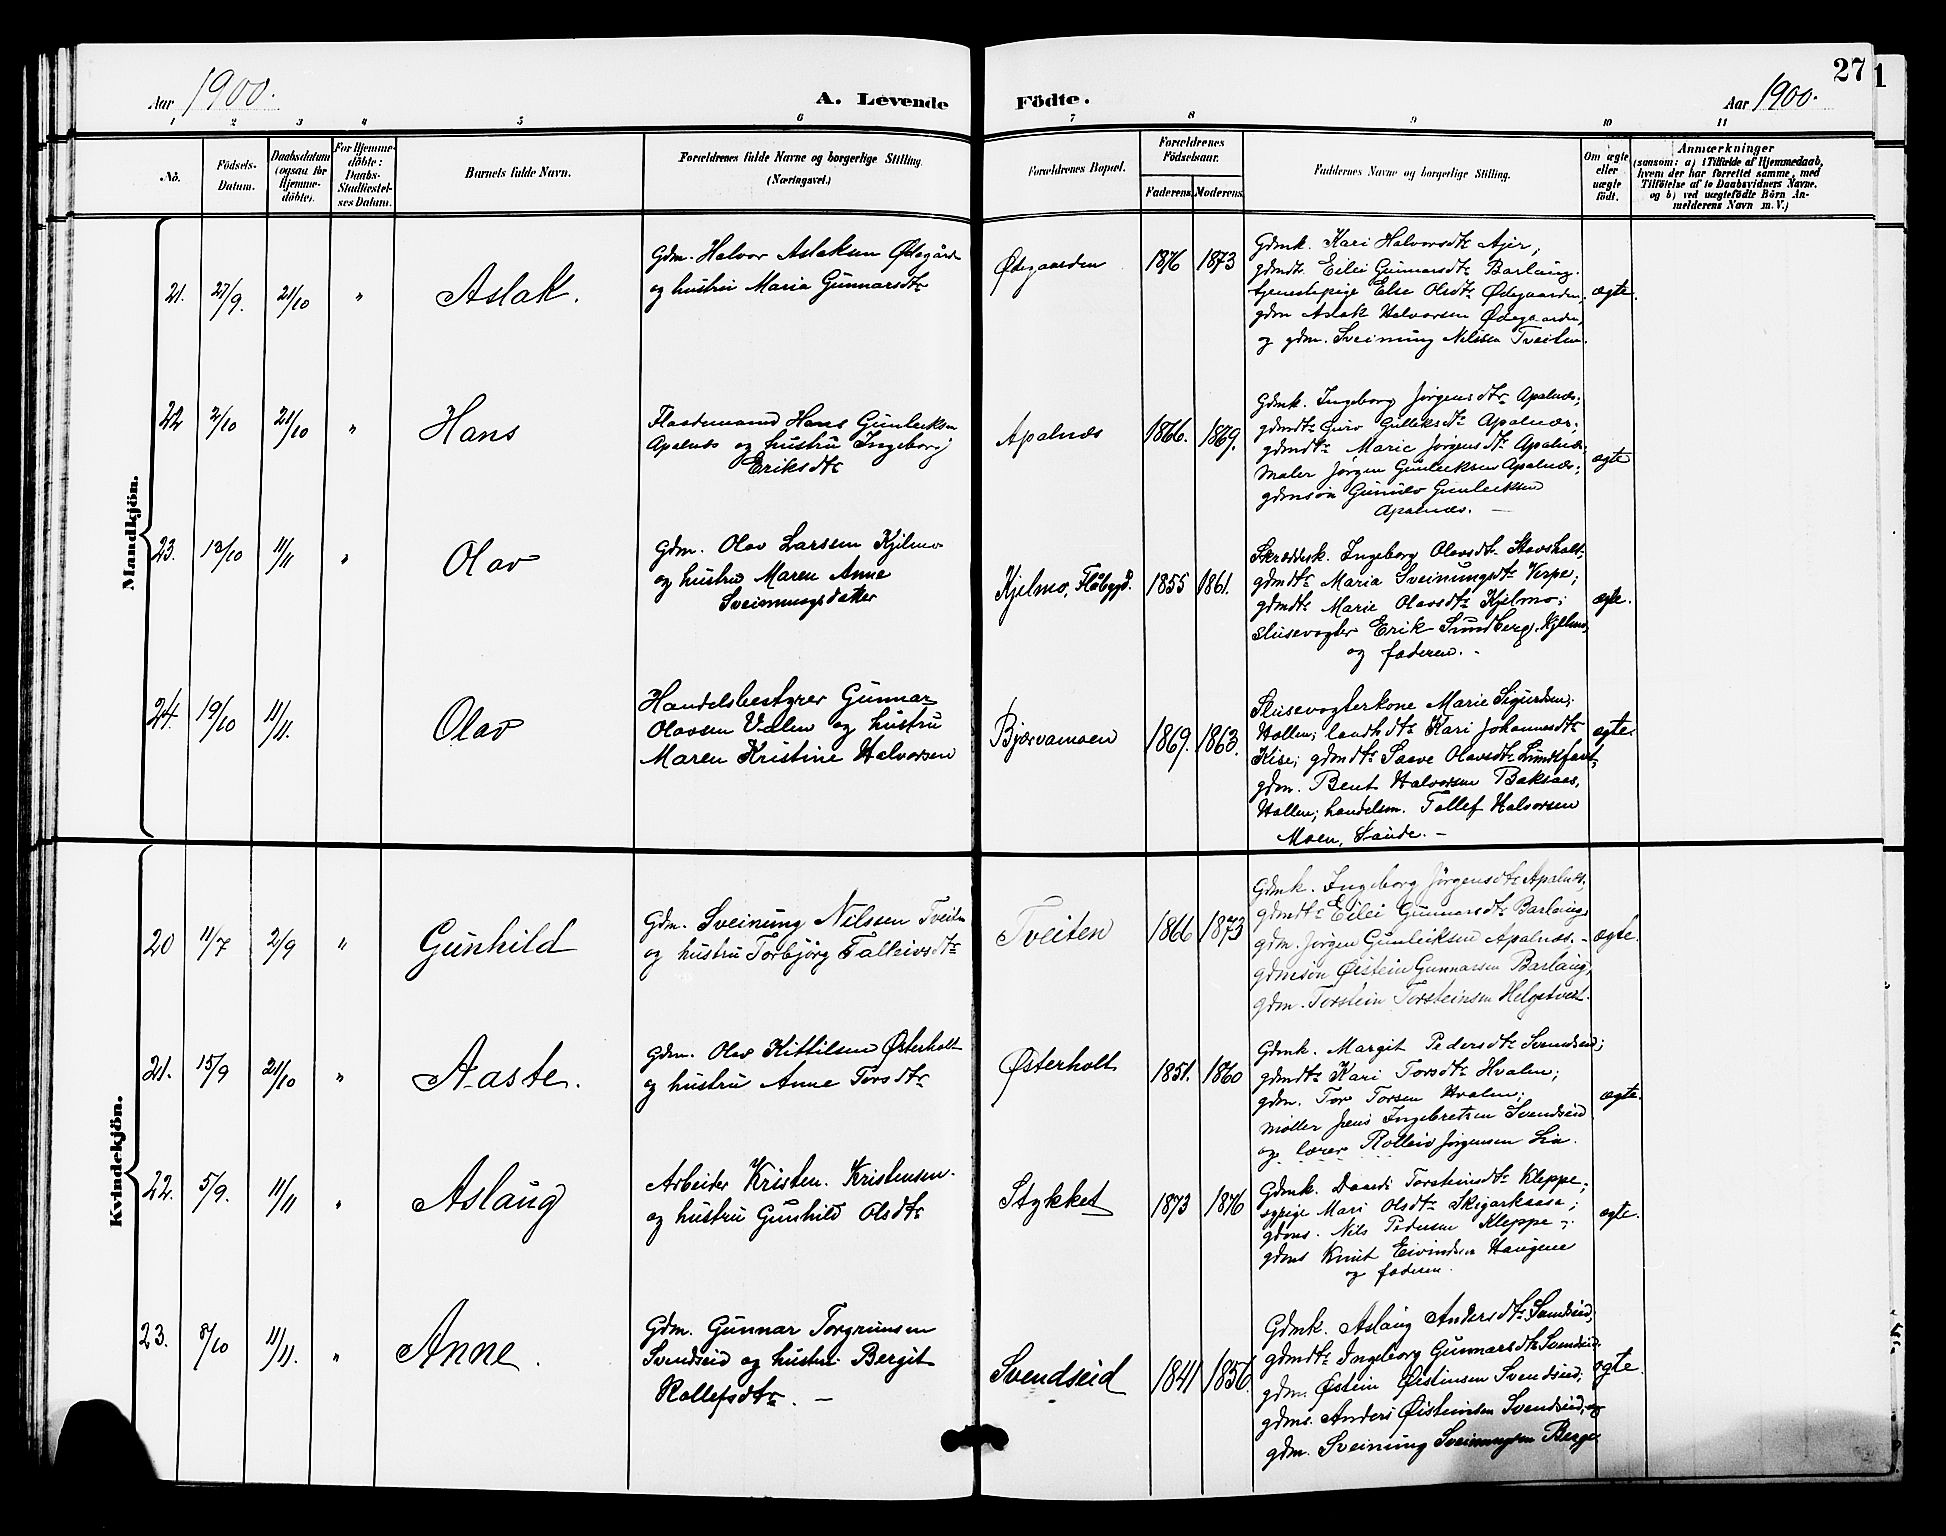 27
1
Aar 1900. A. Levende Födte. Aar 1900.
1 2 3 4 5 6 7 8 9 10 11
No.
Födsels-
Datum.
Daabsdatum
(ogsaa for
Hjemme-
döbte).
For Hjemme-
döbte:
Daabs-
Stadfæstel-
ses Datum.
Barnets fulde Navn.
Forældrenes fulde Navne og borgerlige Stilling.
(Næringsvei.)
Forældrenes Bopæl.
Forældrenes
Födselsaar.
Faderens. Moderens.
Faddernes Navne og borgerlige Stilling.
Om ægte
eller
uægte
födt.
Anmærkninger
(saasom: a) i Tilfælde af Hjemmedaab,
hvem der har forrettet samme, med
Tilföielse af to Daabsvidners Navne,
og b) ved uægtefödte Börn An-
melderens Navn m. V.)
Mandkjön.
21. 27/9. 21/10 " Aslak.
Gdm. Halvor Aslaksen Ødegård
og hustru Maria Gunnarsdtr
Ødegaarden 1876 1873
Gdmk. Kari Halvorsdtr Ajer;
gdmdtr. Eilei Gunnarsdtr Barlaug.
tjenestepige Else Olsdtr Ødegaarden,
gdm Aslak Halvorsen Ødegaarden,
og gdm. Sveinung Nilssen Tveiten.
ægte.
22 2/10 21/10 " Hans
Hans Gunleiksen
Apalnæs og hustru Ingeborg
Eriksdtr
Apalnæs 1866. 1869.
Gdmk. Ingeborg Jørgensdtr Apalnæs;
gdmdtr Guro Gulleiksdtr Apalnæs;
gdmdtr Marie Jørgensdtr Apalnæs;
maler Jørgen Gunleiksen Apalnæs;
gdmsøn Gunnuv Gunleiksen
Apalnæs. —
ægte
23. 12/10 11/11 " Olav
Gdm. Olav Larssen Kjelmo
og hustru Maren Anne
Sveinungsdatter
Kjelmo, Flåbygd. 1855 1861.
Skrædderk. Ingeborg Olavsdtr Stavsholt.
gdmdtr Maria Sveinungsdtr Verpe;
gdmdtr Marie Olavsdtr Kjelmo;
slusevogter Erik Sundberg, Kjelmo,
og faderen. -
ægte.
24. 19/10 11/11. Olav
Handelsbestyrer Gunnar
Olavsen Valen og hustru
Maren Kristine Halvorsen
Bjervamoen 1869. 1863.
Slusevogterkone Marie Sigurdsen,
Hollen; landhdtr Kari Johannesdtr
Kise; gdmdtr Saave Olavsdtr Lundefaret,
gdm. Bent Halvorsen Baksaas,
Hollen; handelsm. Tollef Halvorsen
Moen, Saude. —
ægte.
Kvindekjön.
20 11/7 2/9 " Gunhild
Gdm. Sveinung Nilssen Tveiten
og hustru Torbjörg Talleivsdtr
Tveiten 1866 1873
Gdmk. Ingeborg Jørgensdtr Apalnæs,
gdmdtr Eilei Gunnarsdtr Barlaug,
gdm. Jørgen Gunleiksen Apalnæs. -
gdmsøn Øistein Gunnarsen Barlaug,
gdm. Torstein Torsteinsen Helgetveit.
ægte.
21. 15/9 21/10 " Aaste.
Gdm. Olav Kittilsen Østerholt
og hustru Anne Torsdtr
Østerholt 1851. 1860
Gdmk. Margit Pedersdtr Svendseid;
gdmdtr Kari Torsdtr Hvalen;
gdm. Tor Torsen Hvalen;
møller Jens Ingebretsen Svendseid
og lærer Rolleiv Jørgensen Lia.
ægte.
22. 5/9. 11/11 " Aslaug
Arbeider Kristen Kristensen
og hustru Gunhild Olsdtr
Stykket 1873 1876
Gdmk. Torsteinsdtr Kleppe;
sypige Mari Olsdtr
gdms. Nils Pedersen Kleppe;
gdms Knut Eivindsen Haugene
og faderen.
ægte.
23. 8/10 11/11. " Anne.
Gdm. Gunnar Torgrimsen
Svendseid og hustru Bergit
Rollefsdtr. —
Svendseid 1841 1856.
Gdmk. Aslaug Andersdtr Svendseid,
gdmdtr Ingeborg Gunnarsdtr Svendseid
gdm. Østein Østeinsen Svendseid;
gdms. Anders Øisteinsen Svendseid, og
gdm. Sveinung Sveinungsen Berge
ægte.